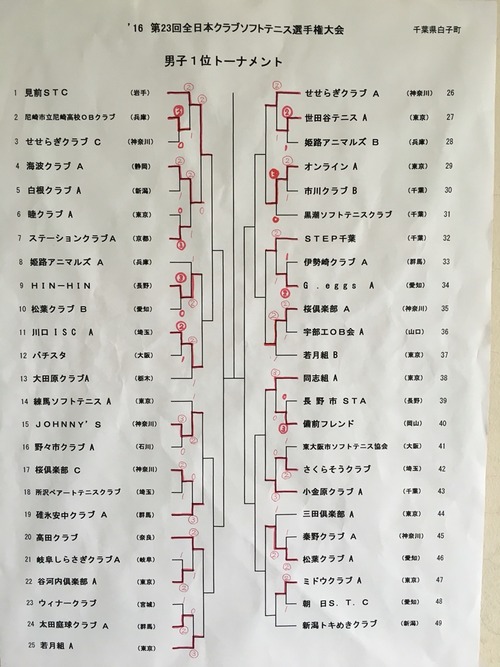 '16 第23回全日本クラブソフトテニス選手権大会 千葉県白子町
男子1位トーナメント
1 見前STC (岩手)
2 尼崎市立尼崎高校OBクラブ (兵庫)
3 せせらぎクラブ C (神奈川)
4 海波クラブ A (静岡)
5 白根クラブ A (新潟)
6 睦クラブ A (東京)
7 ステーションクラブA (京都)
8 姫路アニマルズ A (兵庫)
9 HIN-HIN (長野)
10 松葉クラブ B (愛知)
11 川口ISC A (埼玉)
12 バチスタ (大阪)
13 大田原クラブA (栃木)
14 練馬ソフトテニス A (東京)
15 JOHNNY'S (神奈川)
16 野々市クラブ A (石川)
17 桜倶楽部 C (神奈川)
18 所沢ベアートテニスクラブ (埼玉)
19 碓氷安中クラブ A (群馬)
20 高田クラブ (奈良)
21 岐阜しらさぎクラブA (岐阜)
22 谷河内倶楽部 A (東京)
23 ウィナークラブ (宮城)
24 太田庭球クラブ A (群馬)
25 若月組 A (東京)
せせらぎクラブ A (神奈川) 26
世田谷テニス A (東京) 27
姫路アニマルズ B (兵庫) 28
オンライン A (東京) 29
市川クラブ B (千葉) 30
黒潮ソフトテニスクラブ (千葉) 31
STEP千葉 (千葉) 32
伊勢崎クラブ A (群馬) 33
G.eggs A (愛知) 34
桜倶楽部 A (神奈川) 35
宇部工OB会 A (山口) 36
若月組 B (東京) 37
同志組 A (東京) 38
長野市STA (長野) 39
備前フレンド (岡山) 40
東大阪市ソフトテニス協会 (大阪) 41
さくらそうクラブ (埼玉) 42
小金原クラブ A (千葉) 43
三田倶楽部 A (東京) 44
秦野クラブ A (神奈川) 45
松葉クラブ A (愛知) 46
ミドウクラブ A (東京) 47
朝日S.T.C (愛知) 48
新潟トキめきクラブ (新潟) 49